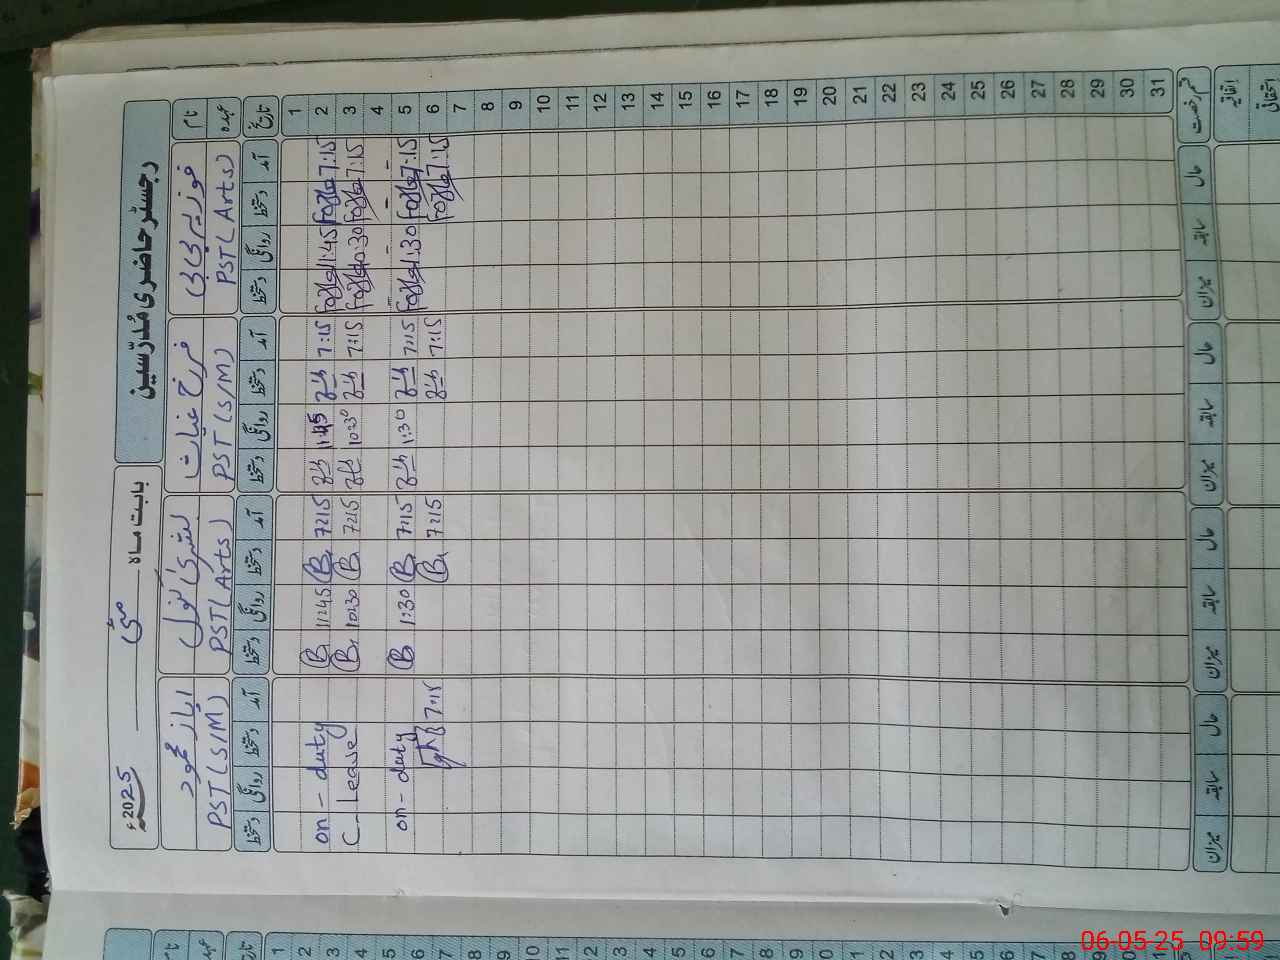 رجسٹر حاضری مُدرّسین
بابت ماہ مئی 2025ء
نام فوزیہ بی بی فرخ غیاث بشریٰ بتول ایاز محمود
عہدہ PST (Arts) PST (S/M) PST (Arts) PST (S/M)
تاریخ آمد دستخط روانگی دستخط آمد دستخط روانگی دستخط آمد دستخط روانگی دستخط آمد دستخط روانگی دستخط
1
2 7:15 11:45 7:15 7:15 11:45 on - duty
3 7:15 10:30 7:15 10:30 7:15 10:30 C - Leave
4
5 7:15 1:30 7:15 1:30 7:15 1:30 on - duty
6 7:15 7:15 7:15 7:15
7
8
9
10
11
12
13
14
15
16
17
18
19
20
21
22
23
24
25
26
27
28
29
30
31
قسم رخصت حال سابقہ میزان حال سابقہ میزان حال سابقہ میزان حال سابقہ میزان
اتفاقیہ
استحقاقی
نام
عہدہ
تاریخ
1
2
3
4
5
6
7
8
9
10
06-05-25 09:59